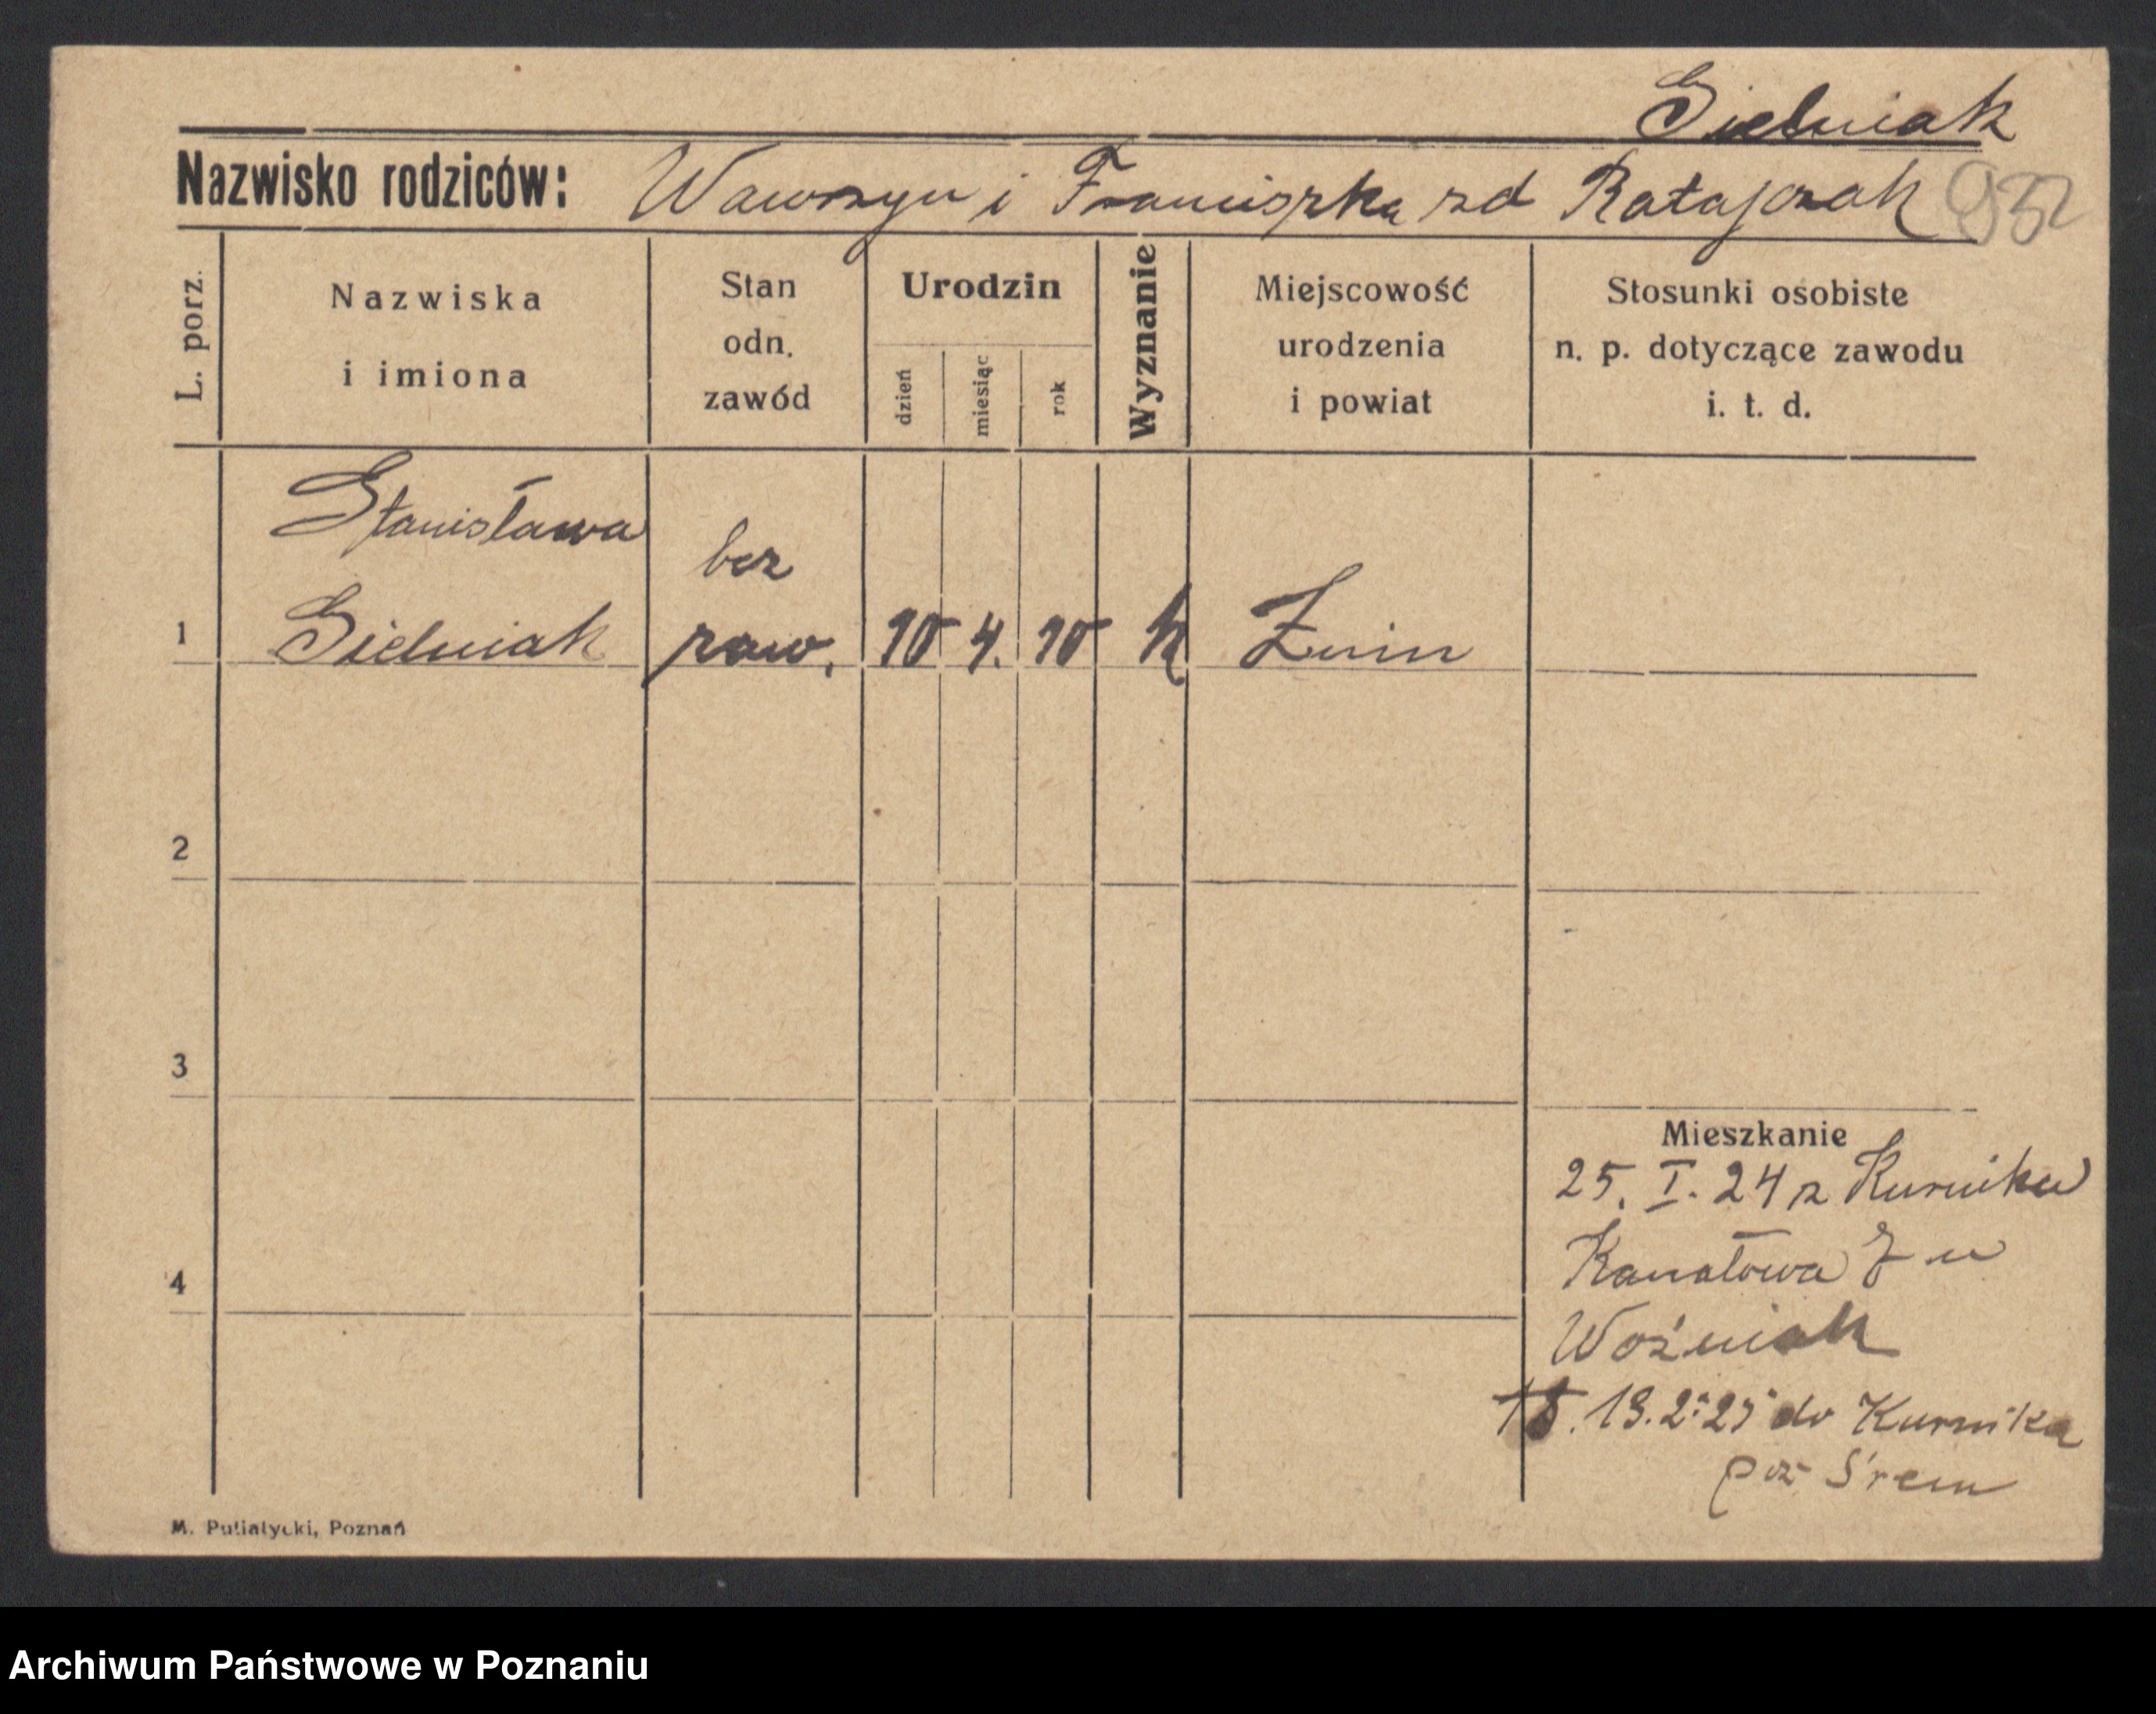 Sielniak
Nazwisko rodziców: Wawrzyn i Franciszka zd Ratajczak 932
L. porz.
Nazwiska
i imiona
Stan
odn.
zawód
Urodzin
dzień
miesiąc
rok
Wyznanie
Miejscowość
urodzenia
i powiat
Stosunki osobiste
n. p. dotyczące zawodu
i. t. d.
Stanisława
bez
1 Sielniak zaw. 10 4. 10 k Żnin
2
3
4
Mieszkanie
25. I. 24 z Kurnika
Kanałowa 7 u
Woźniak
18. 13. 2. 25 do Kurnika
pow Śrem
M. Putiatycki, Poznań
Archiwum Państwowe w Poznaniu